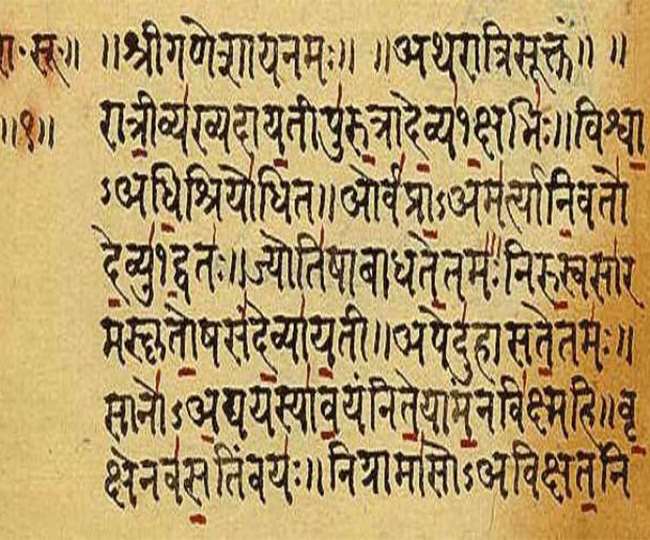 रा॰ सू॰॥ ॥श्रीगणेशायनमः॥ ॥अथरात्रिसूक्तं॥ ॥
॥१॥ रात्रीव्यख्यदायतीपुरुत्रादेव्य१क्षभिः॥विश्वा
ऽअधिश्रियोधित॥ओर्वप्राऽअमर्त्यानिवतो
देव्यु१द्वतः॥ज्योतिषाबाधतेतमः॥निरुस्वसार
मस्कृतोषसंदेव्यायती॥अपेदुहासतेतमः॥
सानोऽअद्ययस्यावयंनितेयामन्नविक्ष्महि॥वृ
क्षेनवसतिंवयः॥नियामासोऽअविक्षतनि